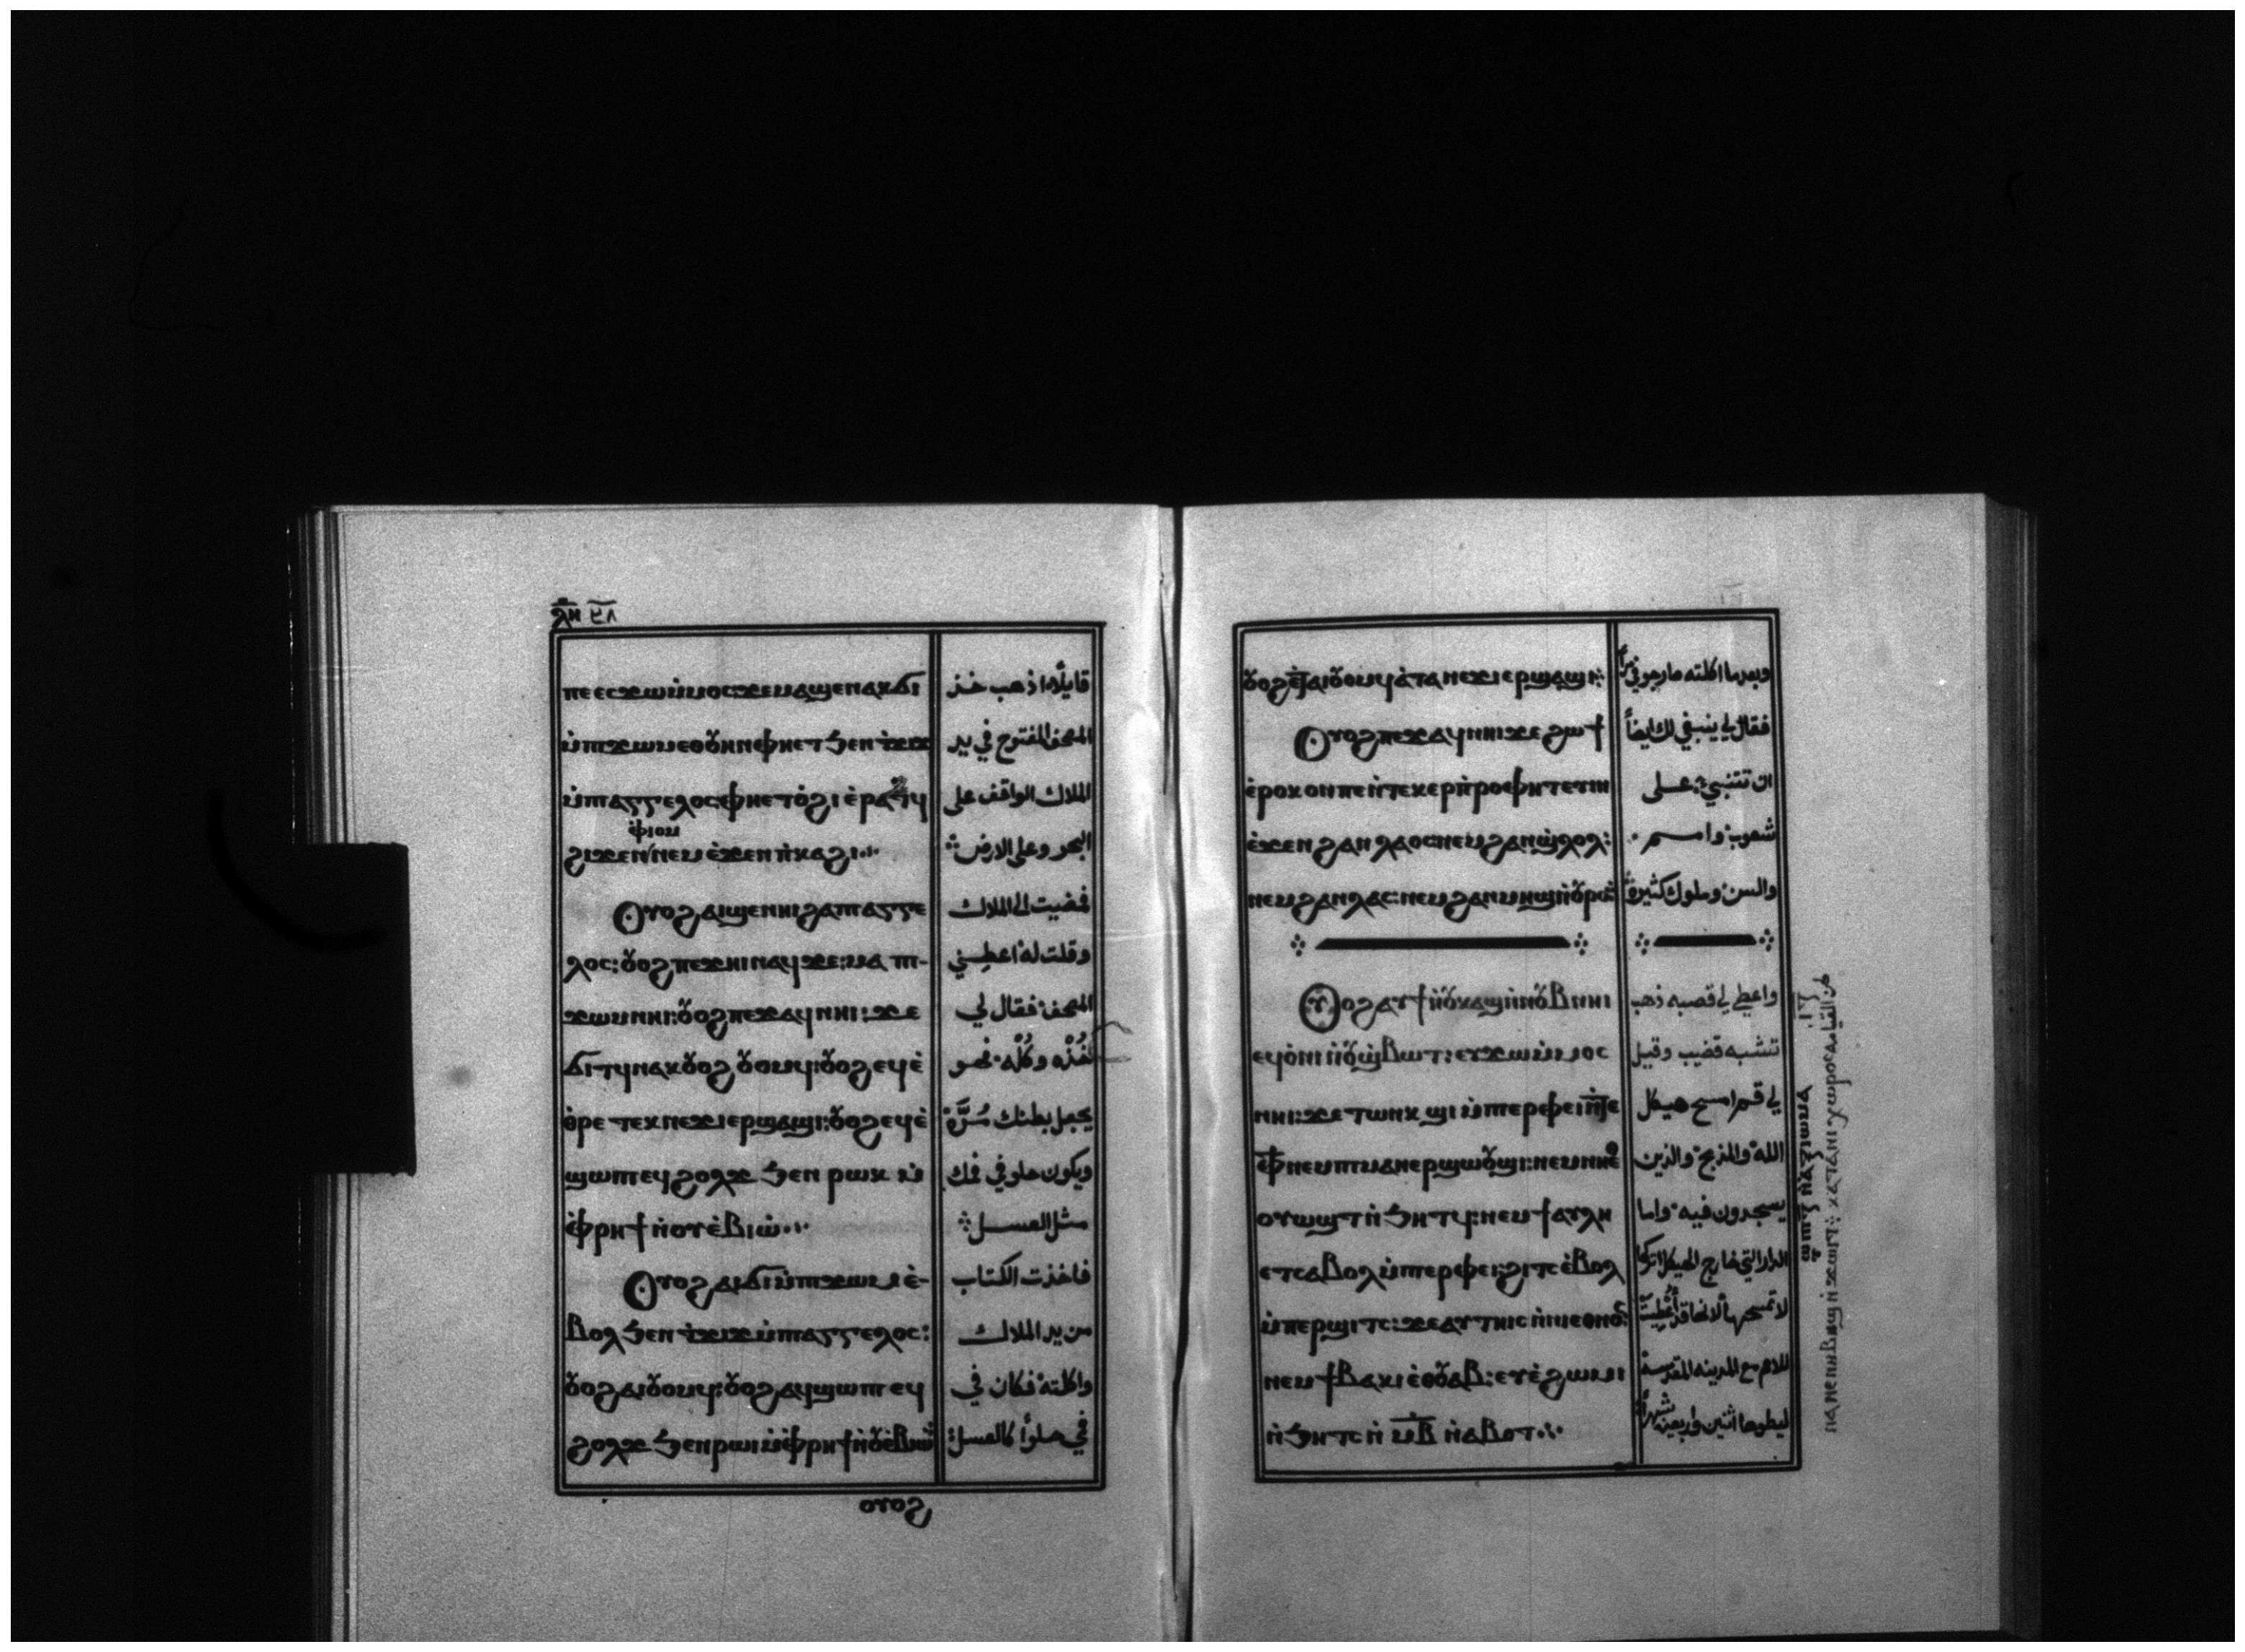 ⲗ̅ⲏ̅ ٣٨
ⲡⲉ ⲉⲥϫⲱ ⲙ̇ⲙⲟⲥ ϫⲉ ⲙⲁϣⲉⲛⲁⲕ ϭⲓ
ⲙ̇ⲡϫⲱⲙ ⲉⲑⲟⲩⲏⲛ ⲫⲏⲉⲧ ϧⲉⲛ ⲧ̇ϫⲓϫ
ⲙ̇ⲡⲁⲅⲅⲉⲗⲟⲥ: ⲫⲏⲉⲧⲟ̇ϩⲓ ⲉ̇ⲣⲁⲧϥ
ⲉ̇ⲫⲓⲟⲙ
ϩⲓϫⲉⲛ ⲛⲉⲙ ⲉ̇ϫⲉⲛ ⲡ̇ⲕⲁϩⲓ
ⲟⲩⲟϩ ⲁⲓϣⲉⲛⲏⲓ ϩⲁ ⲡⲁⲅⲅⲉ
ⲗⲟⲥ: ⲟⲩⲟϩ ⲡⲉϫⲏⲓ ⲛⲁϥ ϫⲉ: ⲙⲁ ⲡⲓ-
ϫⲱⲙ ⲛⲏⲓ: ⲟⲩⲟϩ ⲡⲉϫⲁϥ ⲛⲏⲓ: ϫⲉ
ϭⲓⲧϥ ⲛⲁⲕ ⲟⲩⲟϩ ⲟⲩⲟⲙϥ: ⲟⲩⲟϩ ⲉϥⲉ̇
ⲑ̇ⲣⲉ ⲧⲉⲕⲛⲉϫⲓ ⲉⲣϣⲁϣⲓ: ⲟⲩⲟϩ ⲉϥⲉ̇
ϣⲱⲡⲓ ⲉϥϩⲟⲗϫ ϧⲉⲛ ⲣⲱⲕ ⲙ̇
ⲫ̇ⲣⲏϯ ⲛ̇ⲟⲩⲉ̇ⲃⲓⲱ̇
ⲟⲩⲟϩ ⲁⲓϭⲓ ⲙ̇ⲡϫⲱⲙ ⲉ̇-
ⲃⲟⲗ ϧⲉⲛ ⲧ̇ϫⲓϫ ⲙ̇ⲡⲁⲅⲅⲉⲗⲟⲥ:
ⲟⲩⲟϩ ⲁⲓⲟⲩⲟⲙϥ: ⲟⲩⲟϩ ⲁϥϣⲱⲡⲓ ⲉϥ
ϩⲟⲗϫ ϧⲉⲛ ⲣⲱⲓ ⲙ̇ⲫ̇ⲣⲏϯ ⲛ̇ⲟⲩⲉ̇ⲃⲓⲱ̇
ⲟⲩⲟϩ
قايلاً اذهب خذ
المصحف المفتوح في يد
الملاك الواقف على
البحر وعلى الارض
فمضيت الى الملاك
وقلت له اعطيني
المصحف فقال لي
خُذْه وكُلْه فهو
يجعل بطنك مُرَّة
ويكون حلو في فمك
مثل العسل
فاخذت الكتاب
من يد الملاك
واكلته فكان في
في حلواً كالعسل
ⲟⲩⲟϩ ⲉⲧⲁⲓⲟⲩⲟⲙϥ ⲁ̇ ⲧⲁⲛⲉϫⲓ ⲉⲣϣⲁϣⲓ
ⲟⲩⲟϩ ⲡⲉϫⲁϥ ⲛⲏⲓ ϫⲉ ϩⲱϯ
ⲉ̇ⲣⲟⲕ ⲟⲛ ⲡⲉ ⲛ̇ⲧⲉⲕⲉⲣⲡ̇ⲣⲟⲫⲏⲧⲉⲩⲓⲛ
ⲉ̇ϫⲉⲛ ϩⲁⲛⲗⲁⲟⲥ: ⲛⲉⲙ ϩⲁⲛϣ̇ⲗⲟⲗ:
ⲛⲉⲙ ϩⲁⲛⲗⲁⲥ: ⲛⲉⲙ ϩⲁⲛⲙⲏϣ ⲛ̇ⲟⲩⲣⲱⲟⲩ
ⲟⲩⲟϩ ⲁⲩϯ ⲛ̇ⲟⲩⲕⲁϣ ⲛ̇ⲛⲟⲩⲃ ⲛⲏⲓ
ⲉϥⲟ̇ⲛⲓ ⲛ̇ⲟⲩϣ̇ⲃⲱⲧ: ⲉⲩϫⲱ ⲙ̇ⲙⲟⲥ
ⲛⲏⲓ: ϫⲉ ⲧⲱⲛⲕ ϣⲓ ⲙ̇ⲡⲉⲣⲫⲉⲓ ⲛ̇ⲧⲉ
ⲫϯ ⲛⲉⲙ ⲡⲓⲙⲁⲛⲉⲣϣⲱⲟⲩϣⲓ: ⲛⲉⲙ ⲛⲏⲉⲑ
ⲟⲩⲱϣⲧ ⲛ̇ϧⲏⲧϥ: ⲛⲉⲙ ϯⲁⲩⲗⲏ
ⲉⲧⲥⲁⲃⲟⲗ ⲙ̇ⲡⲉⲣⲫⲉⲓ: ϩⲓⲧⲥ ⲉ̇ⲃⲟⲗ
ⲙ̇ⲡⲉⲣϣⲓⲧⲥ: ϫⲉ ⲁⲩⲧⲏⲓⲥ ⲛ̇ⲛⲓⲉⲑⲛⲟⲥ:
ⲛⲉⲙ ϯⲃⲁⲕⲓ ⲉ̇ⲑⲟⲩⲁⲃ: ⲉⲩⲉ̇ϩⲱⲙⲓ
ⲛ̇ϧⲏⲧⲥ ⲛ̇ ⲙ̅ⲃ̅ ⲛ̇ⲁ̇ⲃⲟⲧ
وبعدما اكلته صار جوفي مراً
فقال لي ينبغي لك ايضاً
ان تتنبي على
شعوب وامم
والسن وملوك كثيرة
واعطى لي قصبه ذهب
تشبه قضيب وقيل
لي قم امسح هيكل
الله والمذبح والذين
يسجدون فيه واما
الدار التي خارج الهيكل اتركها
لا تمسحها لانها قد أُعْطِيَتْ
للامم مع المدينه المقدسة
ليطوها اثنين واربعين شهراً